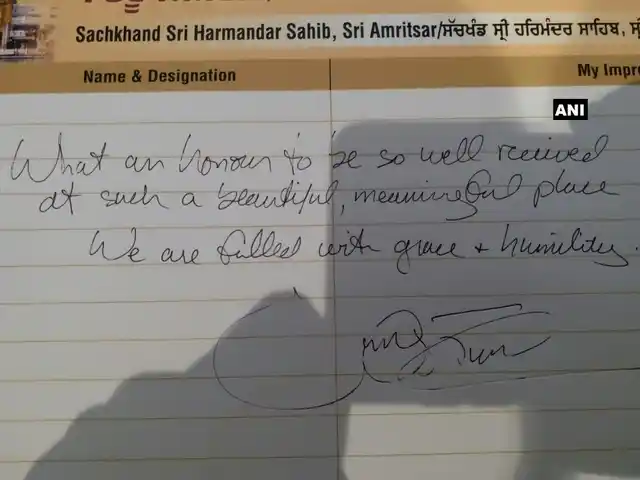 Sachkhand Sri Harmandar Sahib, Sri Amritsar/ਸੱਚਖੰਡ ਸ੍ਰੀ ਹਰਿਮੰਦਰ ਸਾਹਿਬ,
Name & Designation
My Impre
ANI
What an honour to be so well received
at such a beautiful, meaningful place
We are filled with grace + humility.